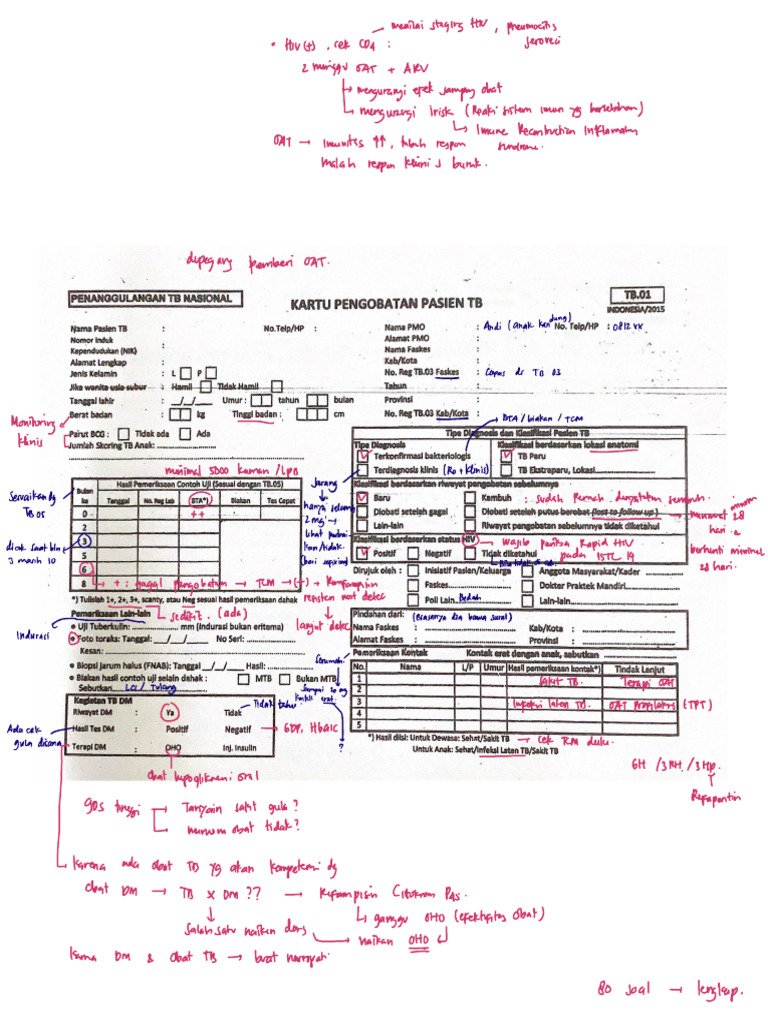 → menilai staging HIV, pneumocitis
jeroveci
• HIV(+), cek CD4 :
2 minggu OAT + ARV
→ mengurangi efek samping obat
→ mengurangi irisk (Reaksi sistem imun yg berlebihan)
→ Imune Reconstruction Inflamatory
syndrome.
OAT → Imunitas ↑↑, tubuh respon
malah respon klinis buruk.
dipegang pemberi OAT.
PENANGGULANGAN TB NASIONAL
KARTU PENGOBATAN PASIEN TB
TB.01
INDONESIA/2015
Nama Pasien TB :
No.Telp/HP :
Nama PMO : Andi (anak kandung) No. Telp/HP : 0812 xx
Nomor Induk
Kependudukan (NIK) :
Alamat PMO :
Nama Faskes :
Alamat Lengkap :
Kab/Kota :
Jenis Kelamin : L P
No. Reg TB.03 Faskes : Copas dr TB 03
Jika wanita usia subur : Hamil Tidak Hamil
Tahun :
Tanggal lahir : __/__/__ Umur : tahun bulan
Provinsi :
Berat badan : kg Tinggi badan : cm
No. Reg TB.03 Kab/Kota :
Monitoring
klinis
Parut BCG : Tidak ada Ada
Jumlah Skoring TB Anak:
BTA / biakan / TCM
Tipe Diagnosis dan Klasifikasi Pasien TB
Tipe Diagnosis
Terkonfirmasi bakteriologis
Terdiagnosis klinis (Ro + klinis)
Klasifikasi berdasarkan lokasi anatomi
TB Paru
TB Ekstraparu, Lokasi
Klasifikasi berdasarkan riwayat pengobatan sebelumnya
Baru
Kambuh : sudah pernah dinyatakan sembuh.
Diobati setelah gagal
Diobati setelah putus berobat (lost to follow up)
Lain-lain
Riwayat pengobatan sebelumnya tidak diketahui
minimum 28
hari
berhenti minimal
28 hari.
Klasifikasi berdasarkan status HIV → wajib periksa Rapid HIV
Positif Negatif Tidak diketahui
Dirujuk oleh : Inisiatif Pasien/Keluarga
Anggota Masyarakat/Kader
Faskes
Dokter Praktek Mandiri
Poli Lain. Bedah
Lain-lain
minimal 5000 kuman / LPB
Hasil Pemeriksaan Contoh Uji (Sesuai dengan TB.05)
Bulan ke Tanggal No. Reg Lab BTA*) Biakan Tes Cepat
0 ++
2
3
5
6
8 → + : gagal pengobatan → TCM → (+) + Rifampisin
resisten not detec
*) Tulislah 1+, 2+, 3+, scanty, atau Neg sesuai hasil pemeriksaan dahak
→ sedikit. (ada)
lanjut detec
TB 05
Jarang
Pemeriksaan Lain-lain
Indurasi
• Uji Tuberkulin: mm (Indurasi bukan eritema)
• Foto toraks: Tanggal: __/__/__ No Seri:
Kesan:
• Biopsi Jarum halus (FNAB): Tanggal __/__/__ Hasil:
• Biakan hasil contoh uji selain dahak : MTB Bukan MTB
Sebutkan LCS / Tulang
Pindahan dari:
Nama Faskes :
Kab/Kota :
Alamat Faskes :
Provinsi :
Pemeriksaan Kontak
Kontak erat dengan anak, sebutkan
No. Nama L/P Umur Hasil pemeriksaan kontak*) Tindak Lanjut
1 Sakit TB. Terapi OAT
2
3 Infeksi laten TB. OAT Profilaksis (TPT)
4
5
*) Hasil diisi: Untuk Dewasa: Sehat/Sakit TB → cek RM dulu.
Untuk Anak: Sehat/Infeksi Laten TB/Sakit TB
6H / 3RH / 3Hp.
Rifapentin
Kegiatan TB DM
Riwayat DM : Ya Tidak
Tidak tahu
Hasil Tes DM : Positif Negatif → GDP, HbA1C
Ada cek
gula disana
Terapi DM : OHO Inj. Insulin
Obat hipoglikemi oral
?
GDS tinggi → Tanyain sakit gula ?
→ minum obat tidak ?
karena ada obat TB yg akan kompetensi dg
obat DM → TB x DM ?? → Rifampisin Citokrom P45.
→ ganggu OHO (efektifitas obat)
salah satu naikan dosis → naikan OHO
karna DM & obat TB →
80 soal → lengkap.